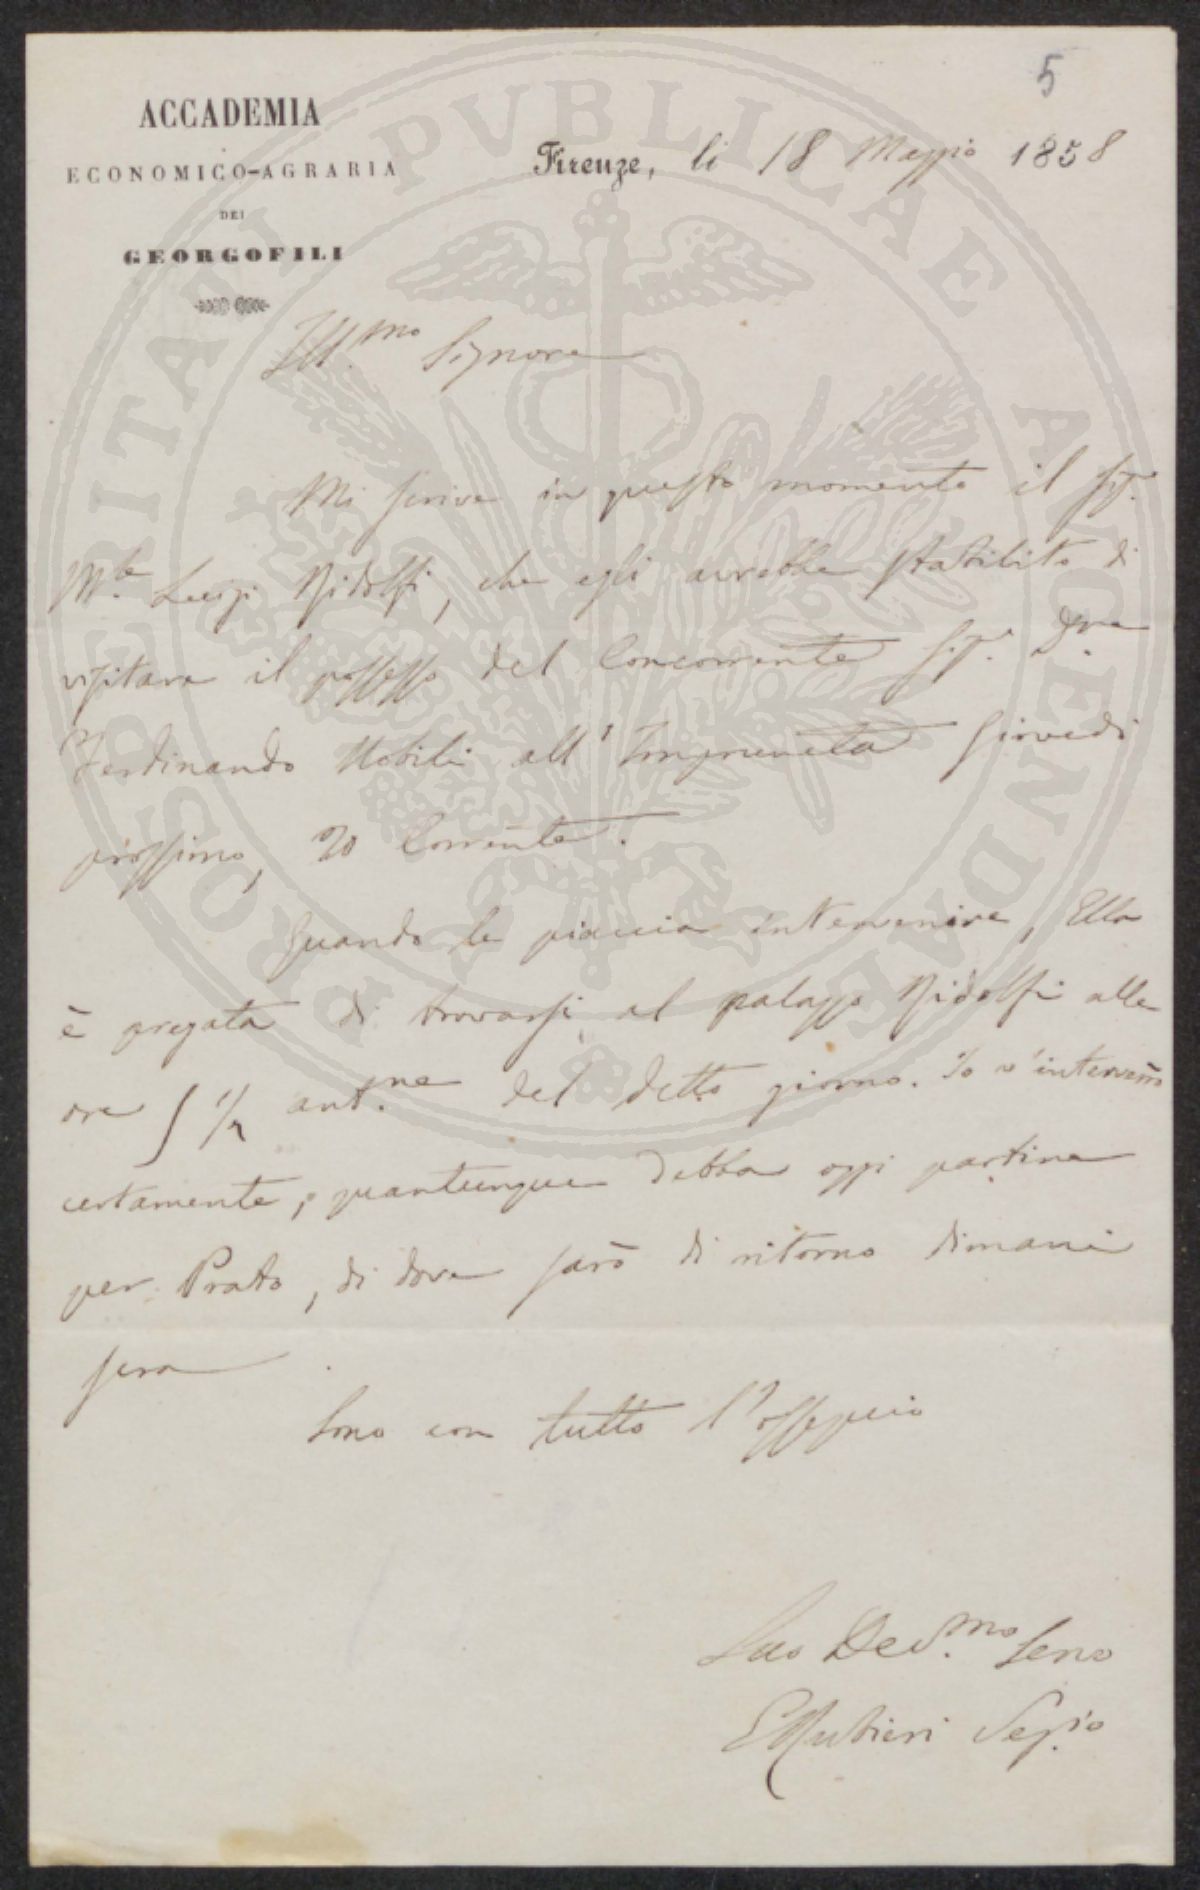 5
ACCADEMIA
ECONOMICO-AGRARIA
DEI
GEORGOFILI
Firenze, li 18 Maggio 1858
Ill.mo Signore
Mi scrive in questo momento il Sig.
M.se Luigi Ridolfi, che egli avrebbe stabilito di
visitare il possesso del Concorrente Sig. D.re
Ferdinando Nobili all'Impruneta Giovedì
prossimo, 20 Corrente.
Quando le piaccia intervenire, Ella
è pregata di trovarsi al palazzo Ridolfi alle
ore 5 1/2 ant.ne del detto giorno. Io v'interverrò
certamente, quantunque debba oggi partire
per Prato, di dove sarò di ritorno dimani
sera.
Sono con tutto l'ossequio
Suo Dev.mo Servo
Segr.io
PROSPERITATI PVBLICAE AVGENDAE